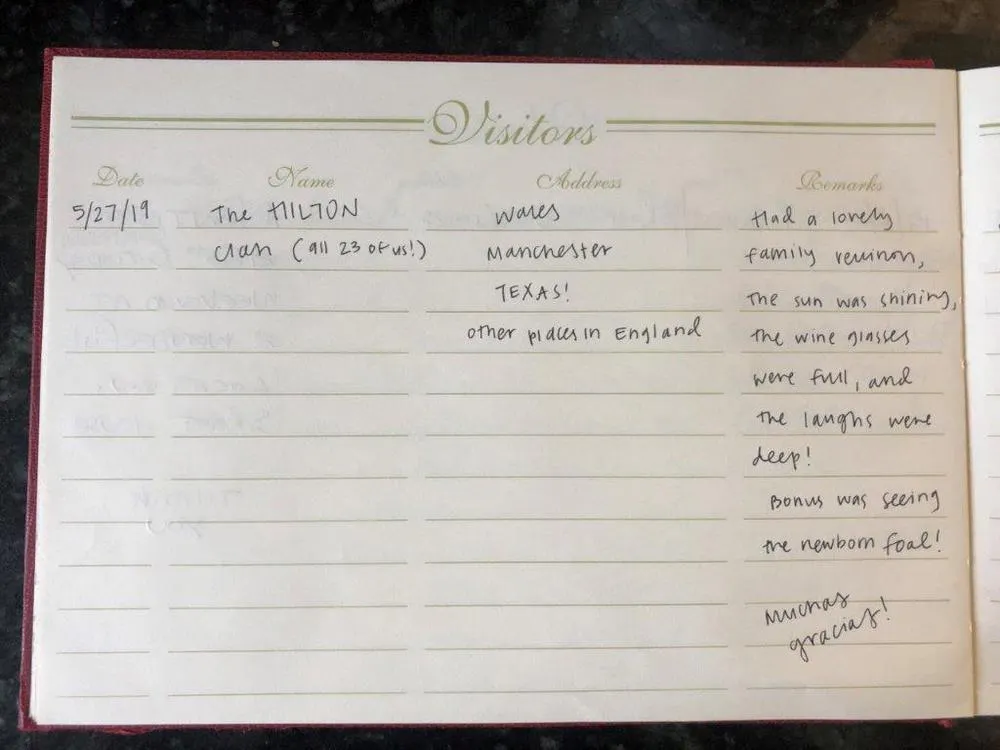 Visitors
Date Name Address Remarks
5/27/19 The HILTON Wales Had a lovely
Clan (all 23 of us!) Manchester family reuinon,
TEXAS! The sun was shining,
other places in England the wine glasses
were full, and
the laughs were
deep!
Bonus was seeing
the newborn foal!
Muchas
gracias!